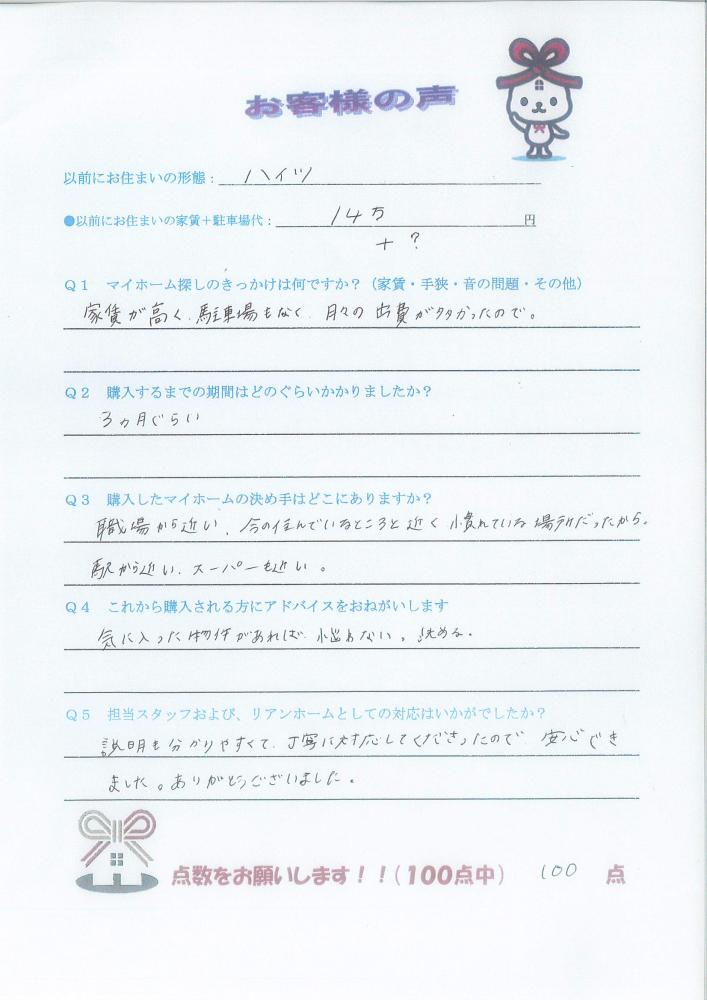 お客様の声
以前にお住まいの形態：ハイツ
●以前にお住まいの家賃＋駐車場代：14万円
＋？
Q1　マイホーム探しのきっかけは何ですか？（家賃・手狭・音の問題・その他）
家賃が高く、駐車場もなく、月々の出費が多かったので。
Q2　購入するまでの期間はどのぐらいかかりましたか？
3ヵ月ぐらい
Q3　購入したマイホームの決め手はどこにありますか？
職場から近い、今の住んでいるところと近く慣れている場所だったから。
駅から近い、スーパーも近い。
Q4　これから購入される方にアドバイスをおねがいします
気に入った物件があれば、悩まない。決める。
Q5　担当スタッフおよび、リアンホームとしての対応はいかがでしたか？
説明も分かりやすくて、丁寧に対応してくださったので、安心でき
ました。ありがとうございました。
点数をお願いします！！（100点中）　100　点